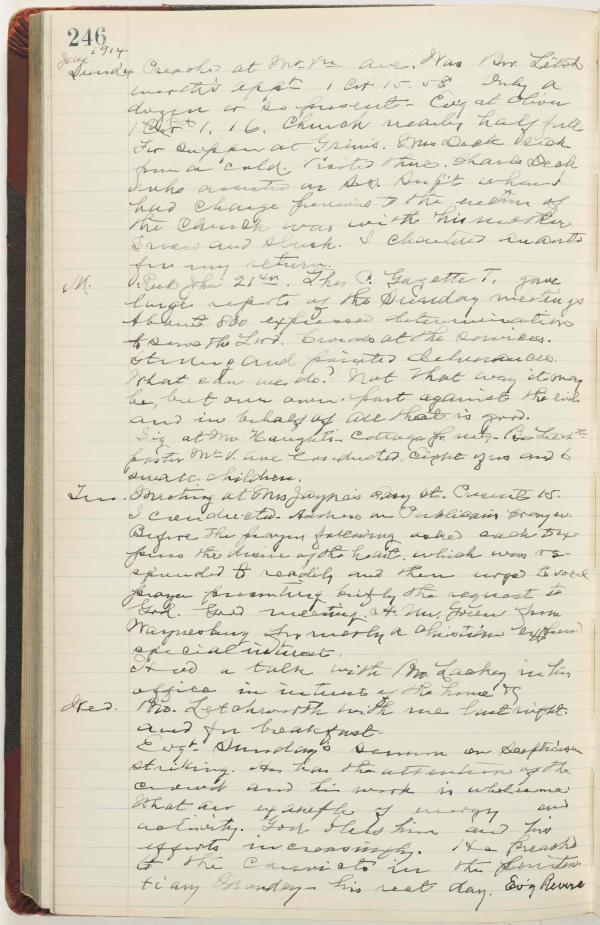 246
Jan 1914
Sunday Preached at Mt. Vn Ave. Was Bro. Letch
worth's appt 1 Cor 15. 58. Only a
dozen or so present. Evg at Oliver
1 1, 16. Church nearly half full
For supper at Grims. Mrs Deek sick
from a cold. Visited there. Charles Deek
who assisted as S.S. Supt when I
had charge previous to the erection of
the Church was with his mother.
Snow and slush. I
for my return.
M. Read John 21st. The P. Gazette T. gave
large reports of the Sunday meetings
About 800 expressed determination
to serve the Lord. Crowds at the services.
Strong and pointed deliverances.
What can we do? Not that way it may
be, but our own part against the evil
and in behalf of all that is good.
Evg at Mr Cottage pr mtg. Bro Letchth
pastor Mt V. Ave Conducted. Eight of us and 6
small children.
Tues. Meeting at Mrs Jayne's St. Present 15.
I conducted. Address on Publican's prayer.
Before the prayer following asked each to ex-
press the desire of the heart. which was re-
sponded to readily and then urge to vocal
prayer presenting briefly the request to
God. Good meeting. A Mr. Green from
Waynesburg formerly a Christian
special interest.
Had a talk with Bro. Lackey in his
office in interest of the home &c
Wed. Bro. Letchworth with me last night
and for breakfast.
Evgt Sunday's sermon on Scepticism
striking. He has the attention of the
crowd and his work is wholesome
What an example of energy and
activity. God bless him and his
efforts increasingly. He preached
to the convicts in the peniten
tiary Monday - his rest day. Evg Revere